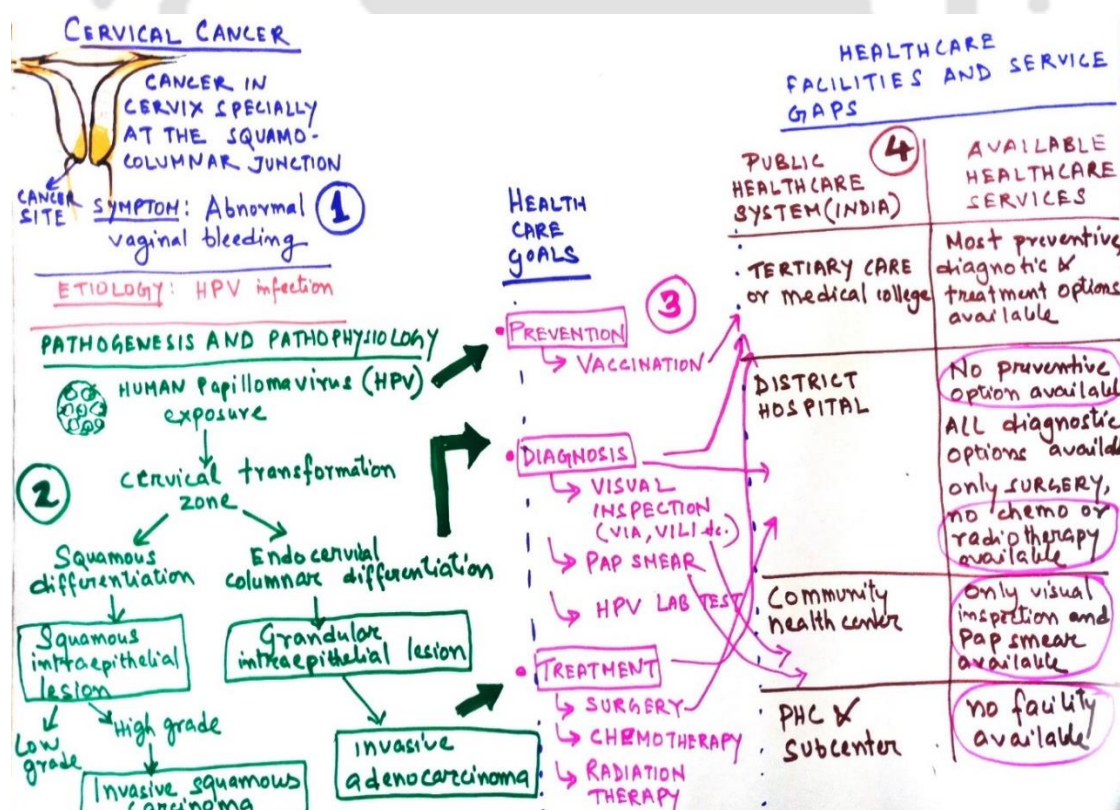 CERVICAL CANCER
CANCER IN
CERVIX SPECIALLY
AT THE SQUAMO-
COLUMNAR JUNCTION
CANCER
SITE
SYMPTOM: Abnormal
vaginal bleeding
1
ETIOLOGY: HPV infection
PATHOGENESIS AND PATHOPHYSIOLOGY
HUMAN Papillomavirus (HPV)
exposure
cervical transformation
zone
2
Squamous
differentiation
Endocervical
columnar differentiation
Squamous
intraepithelial
lesion
Grandular
intraepithelial lesion
Low
grade
High grade
Invasive squamous
carcinoma
invasive
adenocarcinoma
HEALTH
CARE
GOALS
3
PREVENTION
VACCINATION
DIAGNOSIS
VISUAL
INSPECTION
(VIA, VILI etc.)
PAP SMEAR
HPV LAB TEST
TREATMENT
SURGERY
CHEMOTHERAPY
RADIATION
THERAPY
HEALTHCARE
FACILITIES AND SERVICE
GAPS
4
PUBLIC
HEALTHCARE
SYSTEM (INDIA)
AVAILABLE
HEALTHCARE
SERVICES
TERTIARY CARE
or medical college
Most preventive,
diagnotic &
treatment options
available
DISTRICT
HOSPITAL
No preventive
option availabl
ALL diagnostic
options availab
only SURGERY,
no chemo or
radiotherapy
available
Community
health center
Only visual
inspection and
Pap smear
available
PHC &
Subcenter
no facility
available